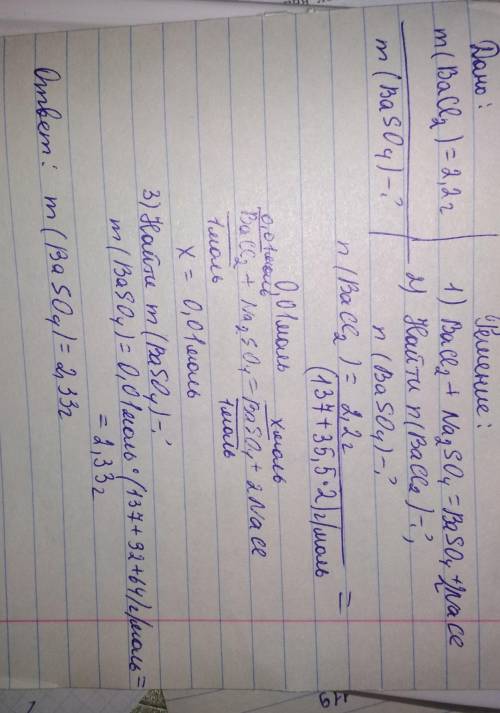 Дано:
m(BaCl₂)=2,2г
m(BaSO₄)-?
Решение:
1) BaCl₂ + Na₂SO₄ = BaSO₄ + 2NaCl
2) Найти n(BaCl₂)-?,
n(BaSO₄)-?
n(BaCl₂) = 2,2г
(137+35,5·2)г/моль =
0,01моль
0,01моль хмоль
BaCl₂ + Na₂SO₄ = BaSO₄ + 2NaCl
1моль 1моль
x = 0,01моль
3) Найти m(BaSO₄)-?
m(BaSO₄)=0,01моль·(137+32+64)г/моль=
= 2,33г
Ответ: m(BaSO₄)=2,33г